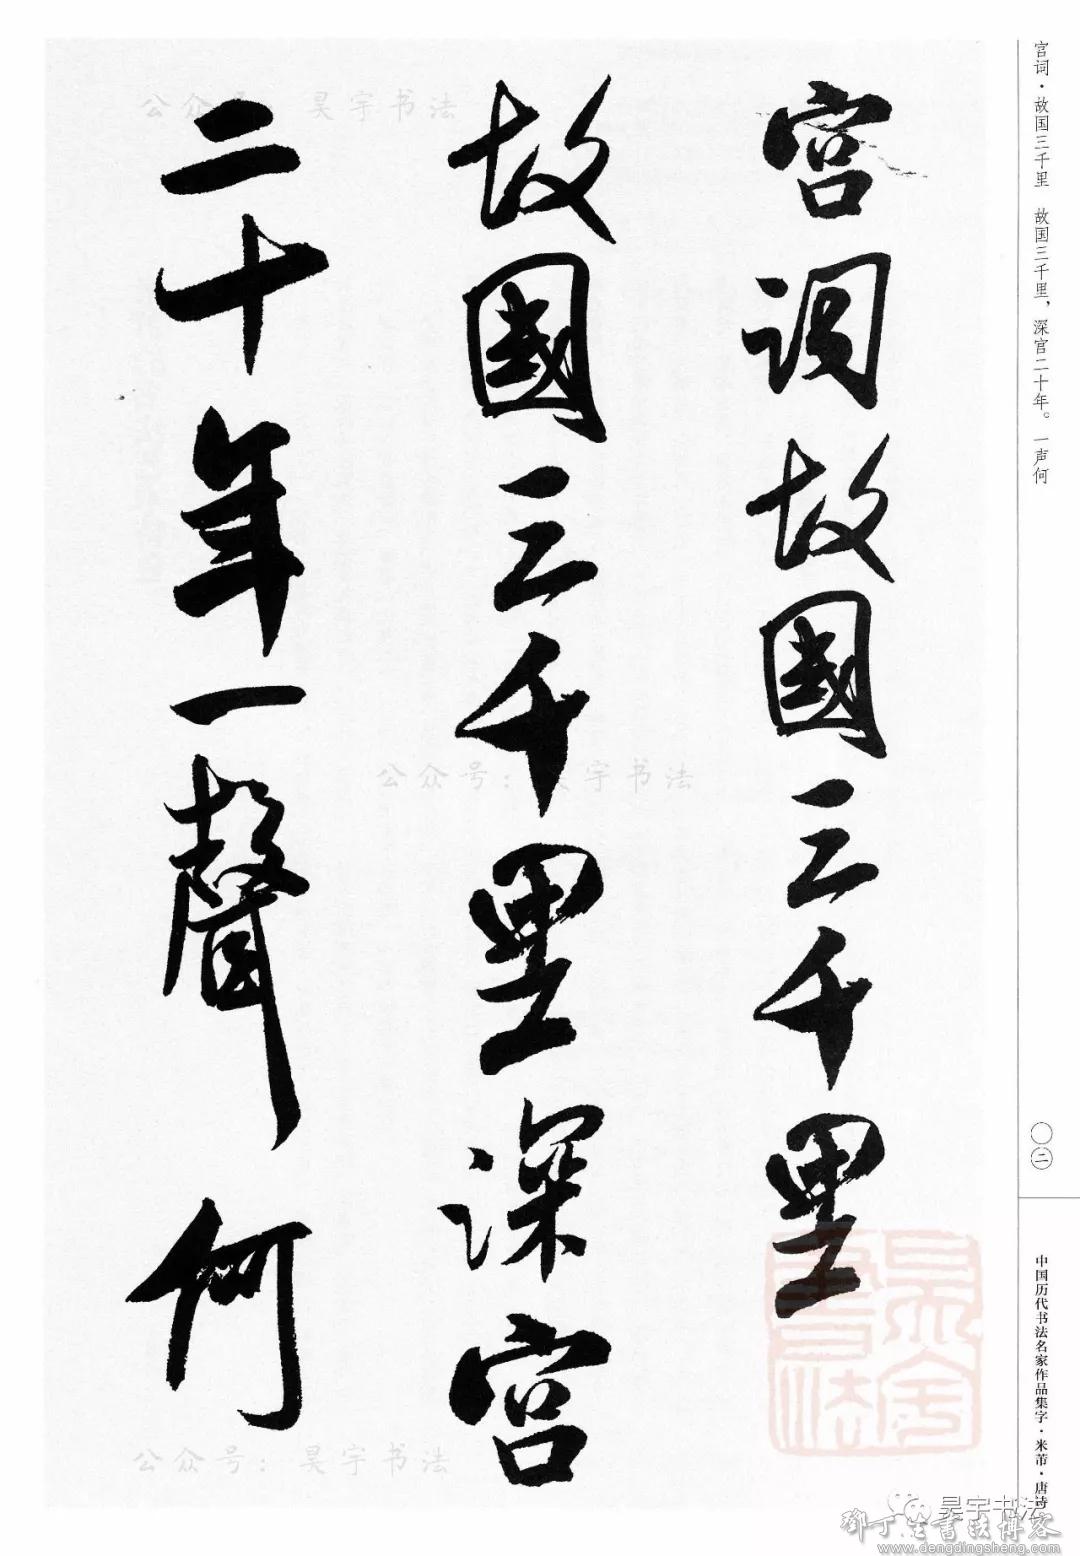 宫词故國三千里
故國三千里深宫
二十年一聲何
宫词·故国三千里　故国三千里，深宫二十年。一声何
〇二
中国历代书法名家作品集字·米芾·唐诗
公众号：昊宇书法
公众号：昊宇书法
公众号：昊宇书法
昊宇书法
昊宇书法
鄧丁生書法博客
www.dengdingsheng.com